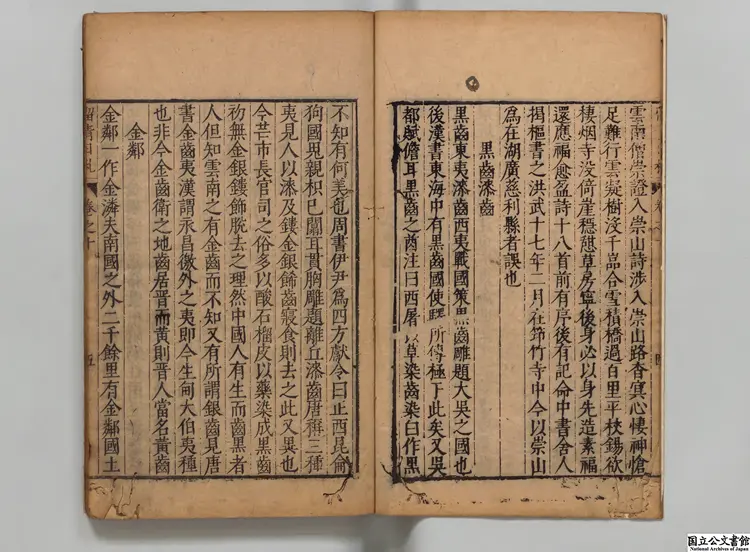 雲南僧崇證入崇山詩涉入崇山路杳冥心悽神愴
足難行雲凝樹淺千嵓合雪積橋過百里平枝錫欲
棲烟寺没倚崖穩憇草房寧後身必以身先造素福
還應福愈盈詩十八首前有序後有記命中書舍人
揭樞書之洪武十七年二月在筇竹寺中今以崇山
為在湖廣慈利縣者誤也
黒齒漆齒
黒齒東夷漆齒西夷戰國策黒齒雕題大吳之國也
後漢書東海中有黒齒國使驛所傳極于此矣又吳
都賦儋耳黒齒之酋注曰西屠以草染齒染白作黒
不知有何美也周書伊尹為四方獻令曰正西昆侖
狗國鬼親枳巳闟耳貫胸雕題離丘漆齒唐稱三種
夷見人以漆及鏤金銀飾齒寢食則去之此又異也
今芒市長官司之俗多以酸石榴皮以藥染成黒齒
初無金銀鏤飾脫去之理然中國人有生而齒黒者
人但知雲南之有金齒而不知又有所謂銀齒見唐
書金齒夷漢謂永昌徼外之夷即今生甸大伯夷種
也非今金齒衛之地齒居晋而黄則晋人當名黄齒
金鄰
金鄰一作金潾夫南國之外二千餘里有金鄰國土
留青日札
卷之十
五
国立公文書館
National Archives of Japan